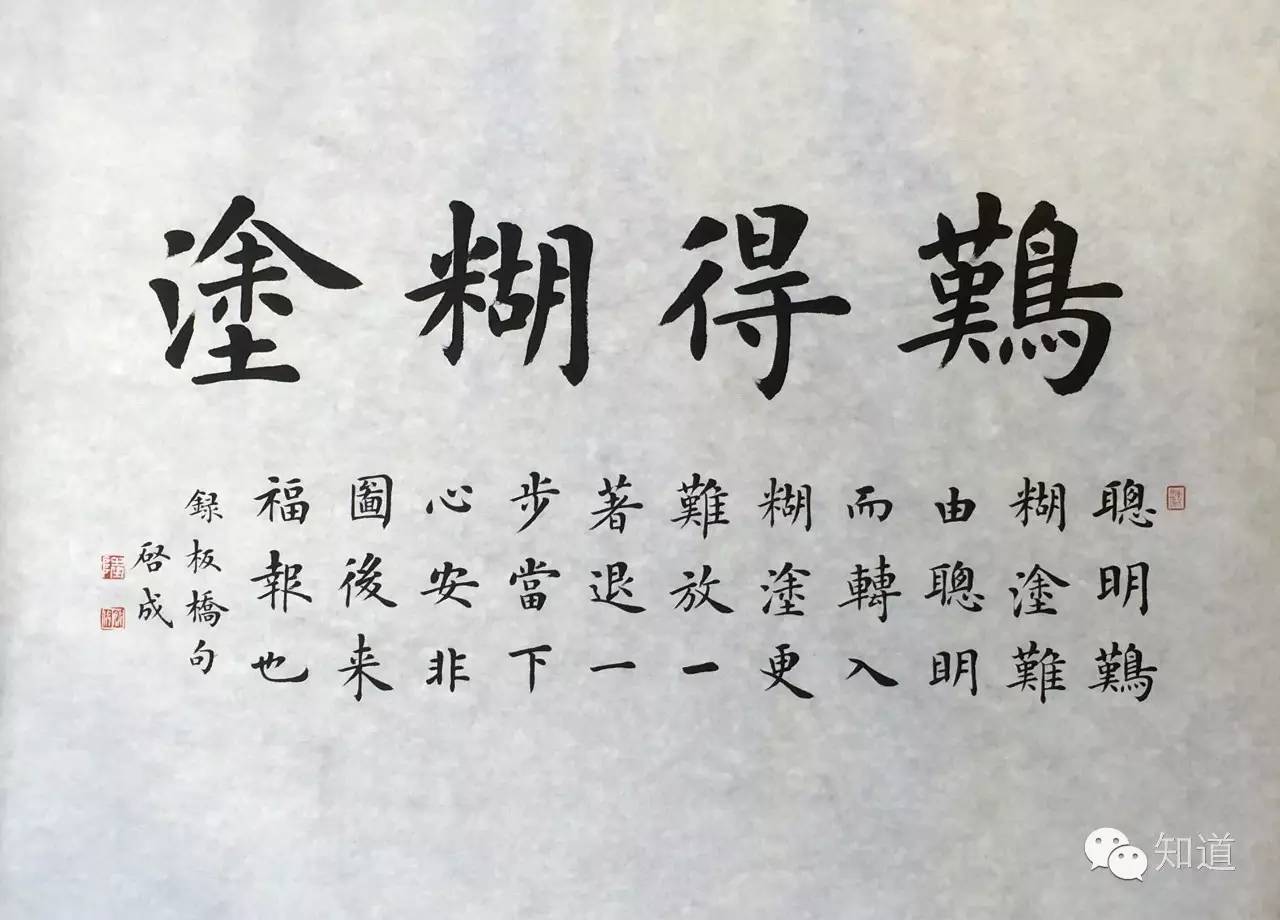 𪄿得糊塗
聰明𪄿
糊塗難
由聰明
而轉入
糊塗更
難放一
著退一
步當下
心安非
圖後来
福報也
録板橋句
啓成
知道